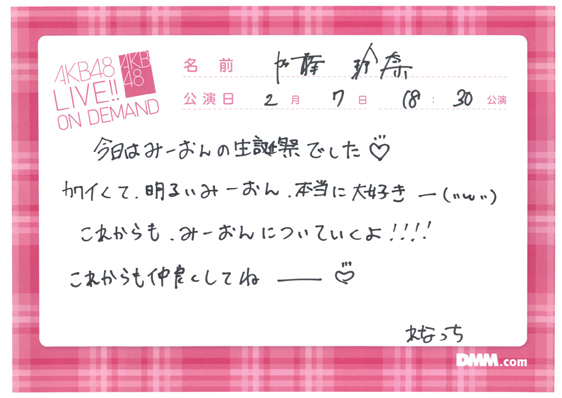 AKB48
LIVE!!
ON DEMAND
AKB
48
名前 加藤 玲奈
公演日 2月 7日 18:30公演
今日はみーおんの生誕祭でした♡
カワイくて、明るいみーおん、本当に大好きー(''ω'')
これからも、みーおんについていくよ!!!!
これからも仲良くしてね ―― ♡
れなっち
DMM.com